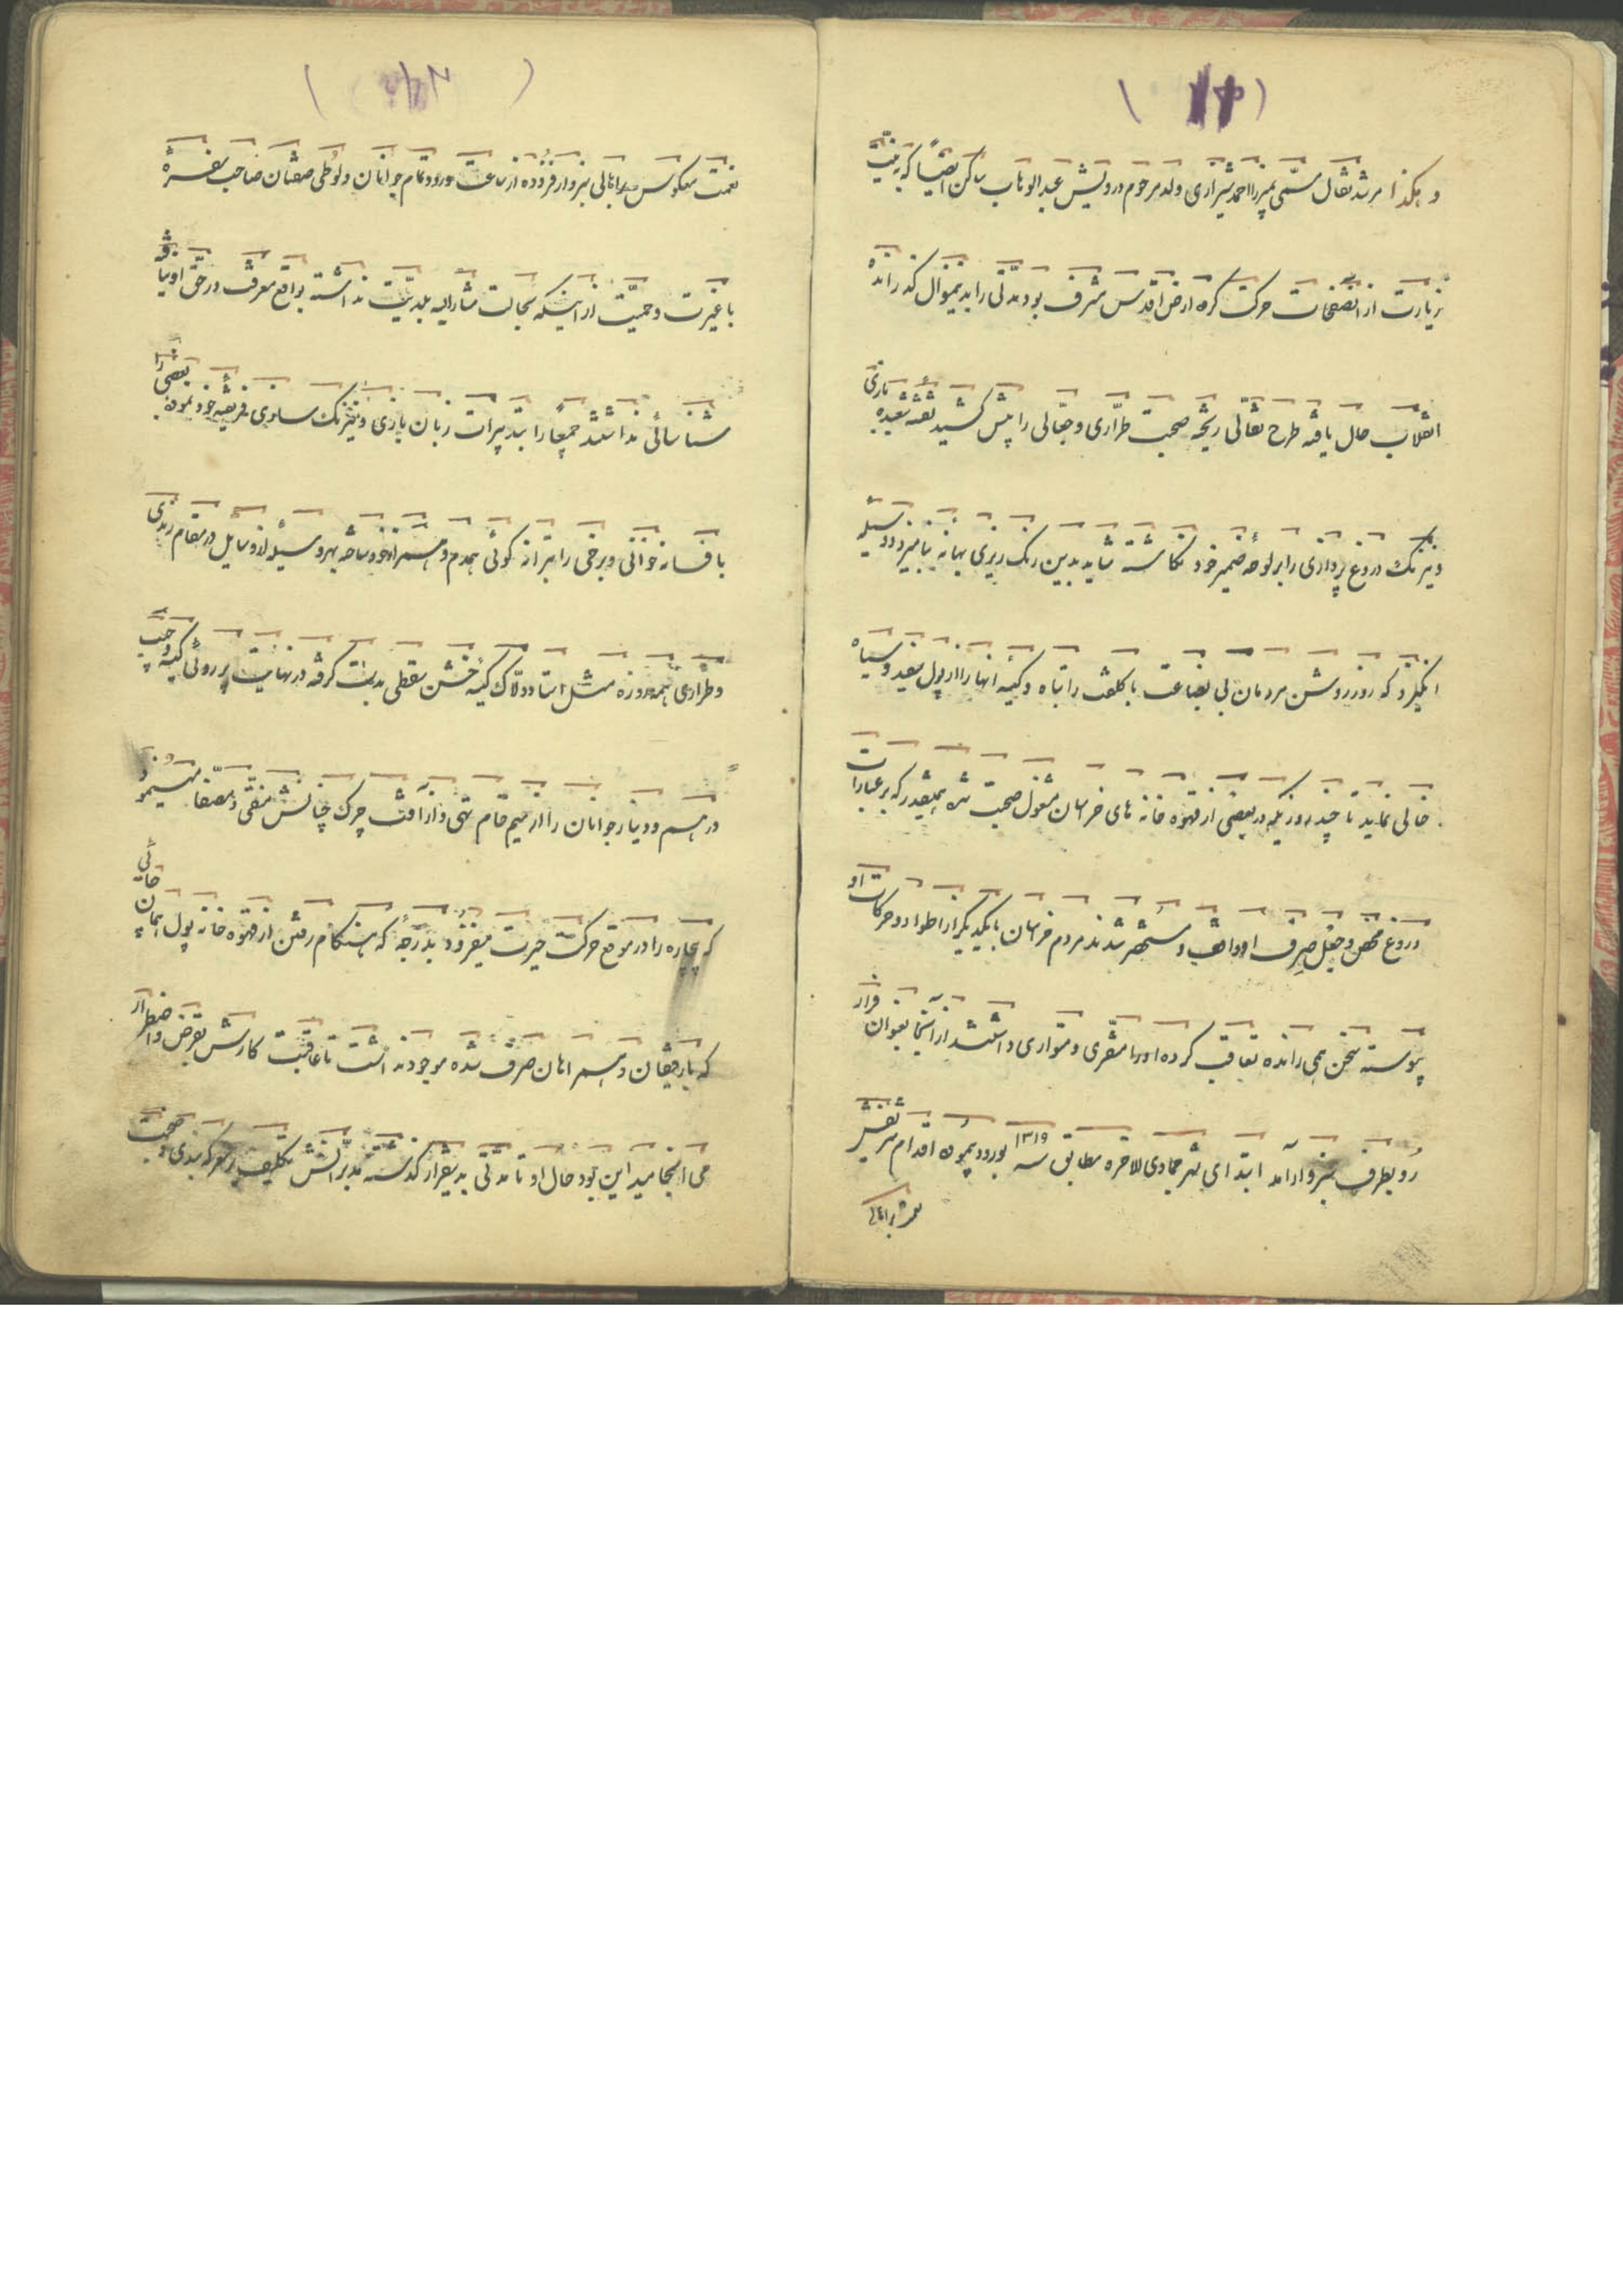 و هکذا مرشد نقال مسمی بمیرزا احمد شیرازی ولد مرحوم درویش عبدالوهاب ساکن که به نیت
زیارت از انصفحات حرکت کرده ارض اقدس مشرف بوده مدتی را بدینمنوال گذرانده
انقلاب حال یافته طرح نقالی ریخته صحبت طراری و جعالی را پیش کشید نقشه شعبده بازی
و نیرنگ دروغ پردازی را بر لوحه ضمیر خود نگاشته شاید بدین رنگ ریزی بهانه و وسیله
انگیزد که روز روشن مردمان بی بضاعت با کلفت را تباه و کیسه آنها را از پول سفید و سیاه
خالی نماید تا چند روزیکه در بعضی از قهوه خانه های خراسان مشغول صحبت شده همینقدر که بر عبارات
دروغ محض و جعل صرف او واقف و مستحضر شدند مردم خراسان با یکدیگر از اطوار و حرکات او
پیوسته سخن همی رانده تعاقب کرده او را متفرّی و متواری داشتند از آنجا بعنوان فرار
رو بطرف سبزوار آمد ابتدای شهر جمادی الاخره مطابق سنه ۱۳۱۹ بورود نموده اقدام
نعمت معکوس بر اهالی سبزوار فزوده از ساعت ورود تمام جوانان و لوطی صفتان صاحب سفره
با غیرت و حمیت از اینکه بحالت مشارالیه بلدیت نداشته بواقع معرفت در حق او نیافته
شناسائی نداشتند جمعی را بتدبیرات زبان بازی و نیرنگ سازی فریفته خود نموده بعضی را
با فسانه خوانی و برخی را بترانه گوئی همدم و همراز خود ساخته بهر وسیله از وسایل در مقام رندی
و طراری همه روزه مثل استاد دلاک کیسه خشن سقطی بدست گرفته در نهایت پر روئی کیسه و جیب
درهم و دینار جوانان را از سیم خام تهی و از آفت چرک چنانش منقی و مصفا مینمود
که بیچاره را در موقع حرکت حیرت میفزود بدرجهٔ که هنگام رفتن از قهوه خانه پول همان چائی
که با رفیقان و همراهان صرف شده موجود نداشت تا عاقبت کارش بقرض و اضطرار
می انجامید این بود حال او تا مدتی بدینقرار گذشته تکلیف معرکه بندی و صحبت